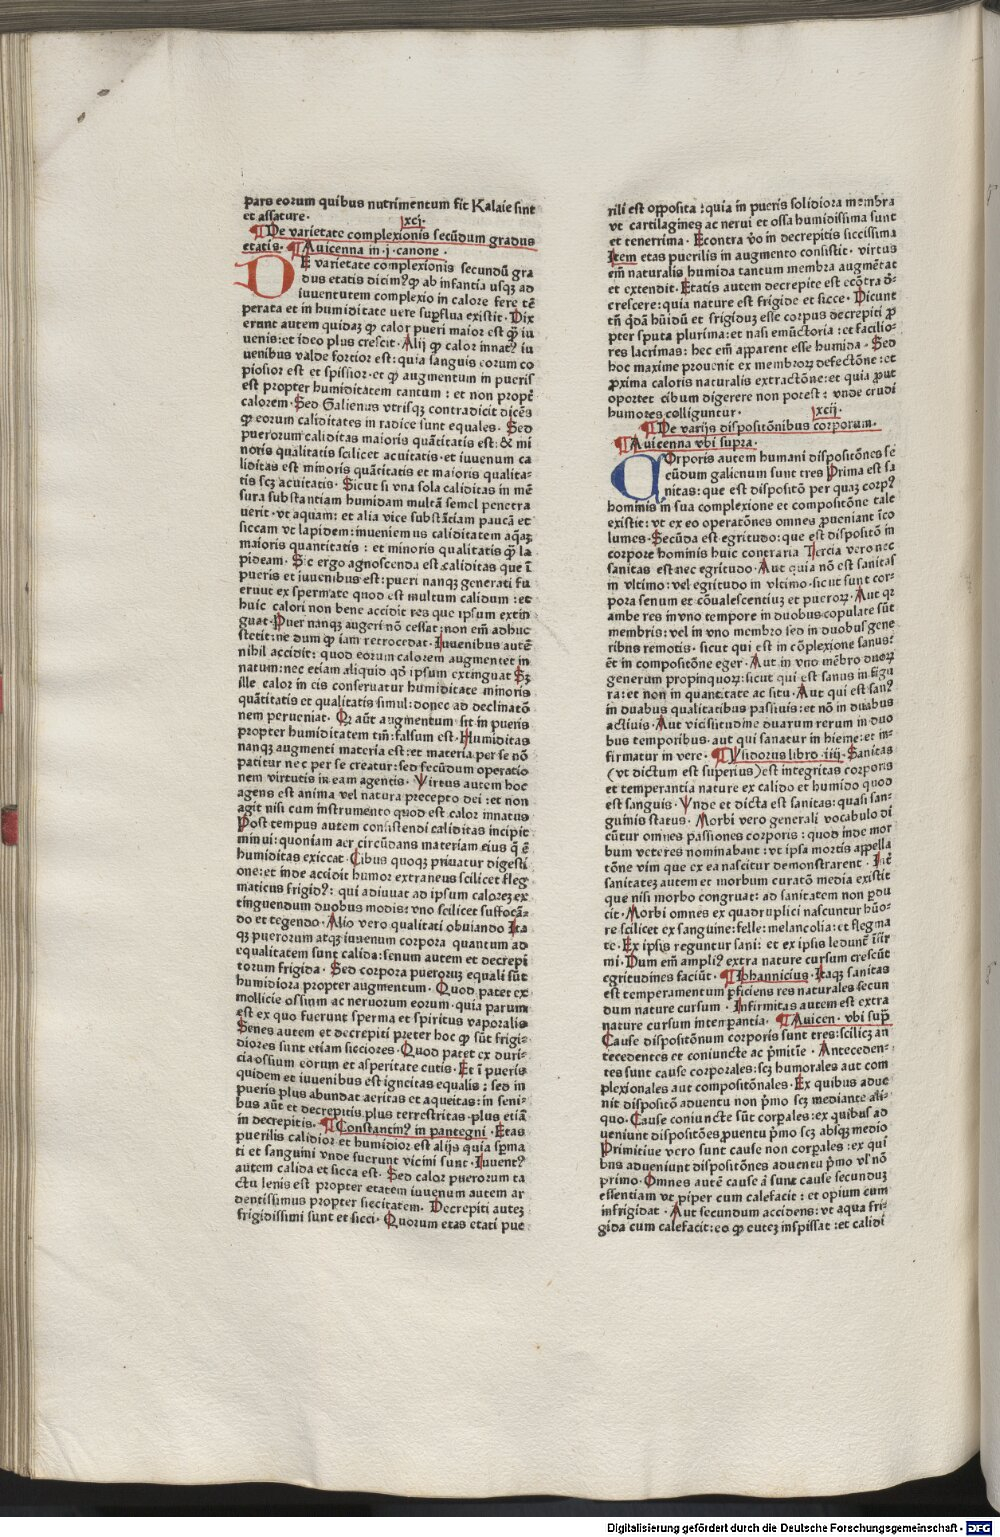 pars eorum quibus nutrimentum fit Kalaie sint
et assature·
xcj·
¶De varietate complexionis secūdum gradus
etatis· ¶Auicenna in·j·canone·
DE varietate complexionis secundū gra
dus etatis dicimꝰ ꝙ ab infantia usqꝫ ad
iuuentutem complexio in calore fere tē
perata et in humiditate uere suꝑflua existit· Dix
erunt autem quidaꝫ ꝙ calor pueri maior est ꝙ̄ iu
uenis:et ideo plus crescit· Alij ꝙ calor innatꝰ iu
uenibus valde fortior est: quia sanguis eorum co
piosior est et spissior·et ꝙ augmentum in pueris
est propter humiditatem tantum : et non propt̄
calorem· Sed Galienus vtrisqꝫ contradicit dicēs
ꝙ eorum caliditates in radice sunt equales· Sed
puerorum caliditas maioris quātitatis est: & mi
noris qualitatis scilicet acuitatis·et iuuenum ca
liditas est minoris quātitatis et maioris qualita-
tis scꝫ acuitatis· Sicut si vna sola caliditas in mē
sura substantiam humidam multā semel penetra
uerit·vt aquam: et alia vice substāciam paucā et
siccam vt lapidem: inueniemus caliditatem aq̄aꝫ
maioris quantitatis : et minoris qualitatis ꝙ̄ la
pideam· Sic ergo agnoscenda est caliditas que ī
pueris et iuuenibus est: pueri nanqꝫ generati fu
erunt ex spermate quod est multum calidum :et
huic calori non bene accidit res que ipsum extin
guat·Puer nanqꝫ augeri nō cessat:non em̄ adhuc
stetit:ne dum ꝙ iam retrocedat· Iuuenibus autē
nihil accidit: quod eorum calorem augmentet in
natum:nec etiam aliquid qd̄ ipsum extinguat Sꝫ
ille calor in eis conseruatur humiditate minoris
quātitatis et qualitatis simul: donec ad declinatō
nem perueniat· Qꝛ aūt augmentum sit in pueris
propter humiditatem tm̄:falsum est· Humiditas
nanqꝫ augmenti materia est:et materia per se nō
patitur nec per se creatur:sed secūdum operatio
nem virtutis in eam agentis· Virtus autem hoc
agens est anima vel natura precepto dei :et non
agit nisi cum instrumento quod est calor innatus
Post tempus autem consistendi caliditas incipit
minui: quoniam aer circūdans materiam eius q̄ ē
humiditas exiccat·Cibus quoqꝫ priuatur digesti
one:et inde accidit humor extraneus scilicet fleg
maticus frigidꝰ: qui adiuuat ad ipsum caloreꝫ ex
tinguendum duobus modis: vno scilicet suffocā-
do et tegendo· Alio vero qualitati obuiando Ita
qꝫ puerorum atqꝫ iuuenum corpora quantum ad
equalitatem sunt calida:senum autem et decrepi
torum frigida· Sed corpora pueroruꝫ equali sūt
humidiora propter augmentum· Quod patet ex
mollicie ossium ac neruorum eorum·quia parum
est ex quo fuerunt sperma et spiritus vaporalis
Senes autem et decrepiti preter hoc ꝙ sūt frigi-
diores sunt etiam sicciores· Quod patet ex duri-
cia ossium eorum et asperitate cutis· Et ī pueris
quidem et iuuenibus est igneitas equalis : sed in
pueris plus abundat aeritas et aqueitas:in seni-
bus aūt et decrepitis plus terrestritas·plus etiā
in decrepitis· ¶Constantinꝰ in pantegni· Etas
puerilis calidior et humidior est alijs quia sꝑma
ti et sanguini vnde fuerunt vicini sunt·Iuuentꝰ
autem calida et sicca est· Sed calor puerorum ta
ctu lenis est propter etatem iuuenum autem ar
dentissimus propter siccitatem· Decrepiti auteꝫ
frigidissimi sunt et sicci· Quorum etas etati pue
rili est opposita :quia in pueris solidiora membra
vt cartilagines ac nerui et ossa humidissima sunt
et tenerrima· Econtra v̄o in decrepitis siccissima
Item etas puerilis in augmento consistit· virtus
em̄ naturalis humida tantum membra augmētat
et extendit· Etatis autem decrepite est ecōtra d̄-
crescere:quia nature est frigide et sicce· Dicunt
tn̄ q̄dā hūidū et frigiduꝫ esse corpus decrepiti ꝓ
pter sputa plurima:et nasi emūctoria :et facilio-
res lacrimas: hec em̄ apparent esse humida· Sed
hoc maxime prouenit ex membroꝝ defectōne :et
ꝓxima caloris naturalis extractōne:et quia ꝓut
oportet cibum digerere non potest: vnde crudi
humores colliguntur·
xcij·
¶De varijs dispositōnibus corporum·
¶Auicenna vbi supra·
COrporis autem humani dispositōnes se
cūdum galienum sunt tres Prima est sa
nitas: que est dispositō per quaꝫ corpꝰ
hominis in sua complexione et compositōne tale
existit: vt ex eo operatōnes omnes ꝓueniant īco
lumes·Secūda est egritudo: que est dispositō in
corpore hominis huic contraria Tercia vero nec
sanitas est nec egritudo·Aut quia nō est sanitas
in vltimo: vel egritudo in vltimo·sicut sunt cor-
pora senum et cōualescentiuꝫ et pueroꝝ·Aut qꝛ
ambe res in vno tempore in duobus copulate sūt
membris: vel in vno membro sed in duobus gene
ribus remotis· sicut qui est in cōplexione sanus:
ēt in compositōne eger· Aut in vno mēbro duoꝝ
generum propinquoꝝ:sicut qui est sanus in figu
ra:et non in quantitate ac situ·Aut qui est sanꝰ
in duabus qualitatibus passiuis:et nō in duabus
actiuis·Aut vicissitudine duarum rerum in duo
bus temporibus·aut qui sanatur in hieme:et in-
firmatur in vere· ¶Ysidorus libro·iiij·Sanitas
(vt dictum est superius)est integritas corporis
et temperantia nature ex calido et humido quod
est sanguis· Vnde et dicta est sanitas:quasi san-
guinis status· Morbi vero generali vocabulo di
cūtur omnes passiones corporis : quod inde mor
bum veteres nominabant :vt ipsa mortis appella
tōne vim que ex ea nascitur demonstrarent· Int̄
sanitateꝫ autem et morbum curatō media existit
que nisi morbo congruat: ad sanitatem non ꝑdu
cit·Morbi omnes ex quadruplici nascuntur hūo-
re scilicet ex sanguine:felle:melancolia:et flegma
te·Ex ipsis reguntur sani: et ex ipsis leduntˉ īfir
mi·Dum em̄ ampliꝰ extra nature cursum crescūt
egritudines faciūt· ¶Iohannicius·Itaqꝫ sanitas
est temperamentum ꝑficiens res naturales secun
dum nature cursum· Infirmitas autem est extra
nature cursum intemꝑantia· ¶Auicen·vbi suꝑ
Cause dispositōnum corporis sunt tres:scilicꝫ an
tecedentes et coniuncte ac p̄mitiue· Anteceden-
tes sunt cause corporales: scꝫ humorales aut com
plexionales aut compositōnales·Ex quibus adue
nit dispositō aduentu non p̄mo scꝫ mediante ali-
quo· Cause coniuncte sūt corꝑales: ex quibus ad
ueniunt dispositōes ꝓuentu p̄mo scꝫ absqꝫ medio
Primitiue vero sunt cause non corꝑales :ex qui
bus adueniunt dispositōnes aduentu p̄mo vl̄ nō
primo·Omnes autē cause ā sunt cause secunduꝫ
essentiam vt piper cum calefacit : et opium cum
infrigidat· Aut secundum accidens: vt aqua fri-
gida cum calefacit:eo ꝙ cuteꝫ inspissat :et calidi
Digitalisierung gefördert durch die Deutsche Forschungsgemeinschaft - DFG